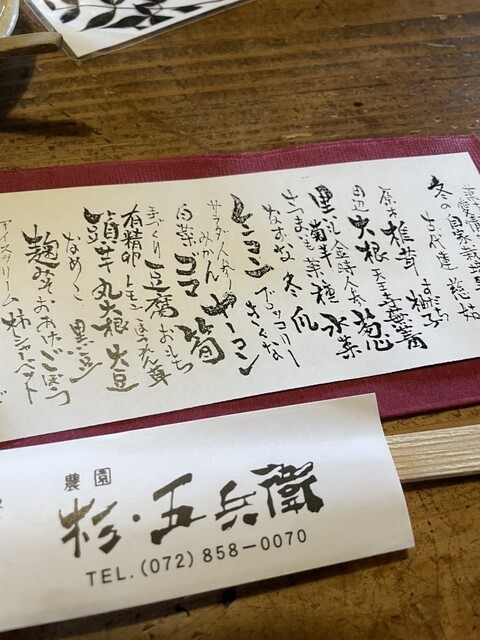 冬の自家荒世菜
古代蓮 慈姑
原木椎茸 はだか
田辺大根 天王寺蕪菁
金時人参 葱
里芋 菊芋 種 水菜
さつま
なずな 冬瓜
ブロッコリー
レンコン きくな
サラダ人参 ヤーコン
みかん
白菜 ゴマ 筍
手づくり豆腐 おもち
有精卵 レモン ほうれん草
頭芋 丸大根 大豆
なめこ 黒豆
麹みそ おあげ ごぼう
アイスクリーム 柿シャーベット
農園
杉・五兵衛
TEL.(072)858-0070